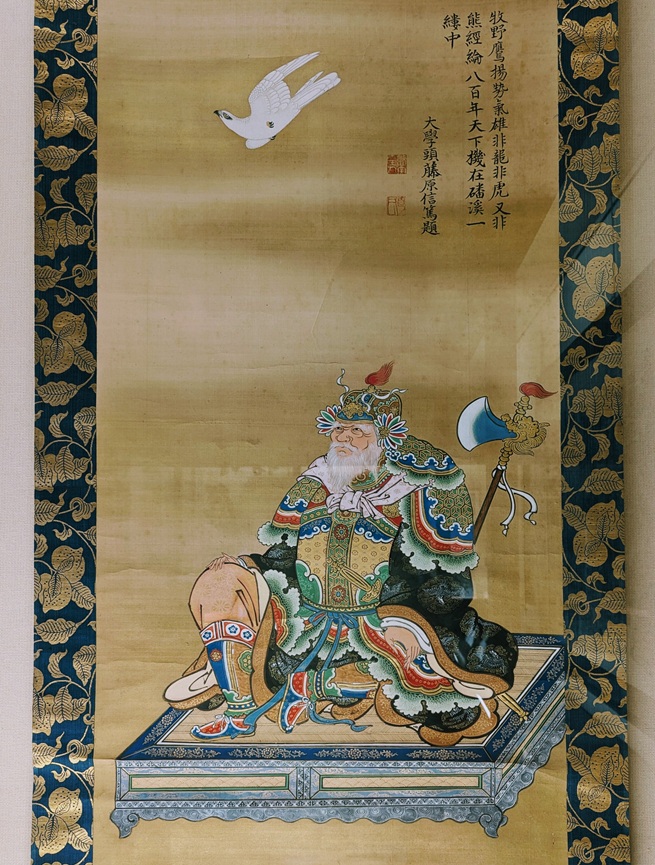 牧野鷹揚勢氣雄非龍非虎又非
熊經綸八百年天下機在磻溪一
縷中
大學頭藤原信篤題